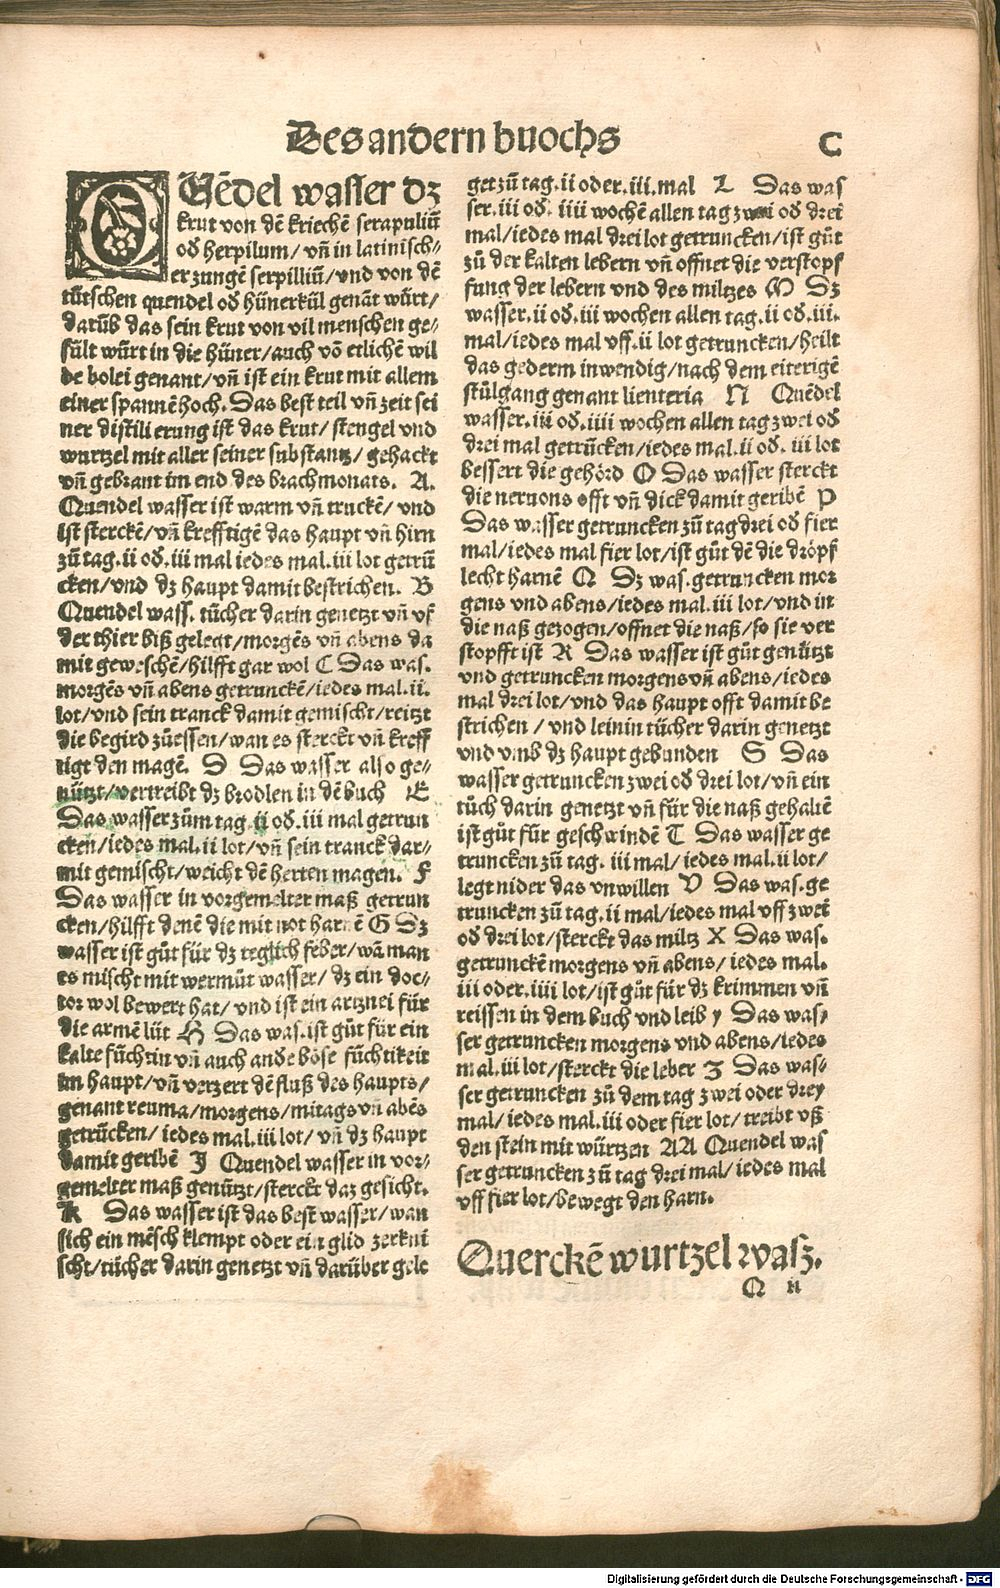 Des andern buochs C
QUēdel wasser dz
krut von dē kriechē serapuliū
od herpilum/ vñ in latinisch-
er zungē serpilliū/vnd von dē
tütschen quendel od hünerkül genāt würt/
darūb das sein krut von vil menschen ge-
fült würt in die hüner/auch vō etlichē wil
de bolei genant/vñ ist ein krut mit allem
einer spannē hoch. Das best teil vñ zeit sei
ner distilierung ist das krut/ stengel vnd
wurtzel mit aller seiner substantz/ gehackt
vñ gebrant im end des brachmonats. A.
Quendel wasser ist warm vñ truckē/ vnd
ist sterckē/vñ krefftigē das haupt vñ hirn
zů tag.ii od.iii mal iedes mal.iii lot getrū
cken/vnd dz haupt damit bestrichen. B
Quendel wass. tücher darin genetzt vñ vf
der thier biß gelegt/morgēs vñ abens da
mit geweschē/hilfft gar wol C Das was.
morgēs vñ abens getrunckē/iedes mal.ii.
lot/vnd sein tranck damit gemischt/reitzt
die begird zůessen/wan es sterckt vñ kreff
tigt den magē. D Das wasser also ge-
nützt/vertreibt dz brodlen in dē buch E
Das wasser zům tag.ii od.iii mal getrun
cken/iedes mal.ii lot/vñ sein tranck dar-
mit gemischt/weicht dē herten magen. F
Das wasser in vorgemelter maß getrun
cken/hilfft denē die mit not harnē G Dz
wasser ist gůt für dz teglich feber/wā man
es mischt mit wermůt wasser/ dz ein doc-
tor wol bewert hat/ vnd ist ein artznei für
die armē lüt H Das was.ist gůt für ein
kalte füchtin vñ auch ande böse füchtikeit
im haupt/vñ verzert dē fluß des haupts/
genant reuma/morgens/mitags vñ abēs
getrūcken/ iedes mal.iii lot/ vñ dz haupt
damit geribē J Quendel wasser in vor-
gemelter maß genützt/sterckt daz gesicht.
K Das wasser ist das best wasser/wan
sich ein mēsch klempt oder ein glid zerkni
scht/tücher darin genetzt vñ darüber gele
get zů tag.ii oder.iii.mal L Das was
ser.iii od.iiii wochē allen tag zwei od drei
mal/iedes mal drei lot getruncken/ist gůt
zů der kalten lebern vñ offnet die verstopf
fung der lebern vnd des miltzes M Dz
wasser.ii od.iii wochen allen tag.ii od.iii.
mal/iedes mal vff.ii lot getruncken/heilt
das gederm inwendig/nach dem eiterigē
stülgang genant lienteria N Quēdel
wasser.iii od.iiii wochen allen tag zwei od
drei mal getrūcken/iedes mal.ii od.iii lot
bessert die gehörd O Das wasser sterckt
die neruons offt vñ dick damit geribē P
Das wasser getruncken zů tag drei od fier
mal/iedes mal fier lot/ist gůt dē die dröpf
lecht harnē Q Dz was.getruncken mor
gens vnd abens/iedes mal.iii lot/vnd in
die naß gezogen/offnet die naß/so sie ver
stopfft ist R Das wasser ist gůt genützt
vnd getruncken morgens vñ abens/iedes
mal drei lot/vnd das haupt offt damit be
strichen / vnd leinin tücher darin genetzt
vnd vmb dz haupt gebunden S Das
wasser getruncken zwei od drei lot/vñ ein
tůch darin genetzt vñ für die naß gehaltē
ist gůt für geschwindē T Das wasser ge
truncken zů tag. iii mal/ iedes mal.ii lot/
legt nider das vnwillen V Das was.ge
truncken zů tag.ii mal/iedes mal vff zwei
od drei lot/sterckt das miltz X Das was.
getrunckē morgens vñ abens/ iedes mal.
iii oder.iiii lot/ist gůt für dz krimmen vñ
reissen in dem buch vnd leib y Das was-
ser getruncken morgens vnd abens/iedes
mal.iii lot/sterckt die leber Z Das was-
ser getruncken zů dem tag zwei oder drey
mal/iedes mal.iii oder fier lot/treibt vß
den stein mit würtzen AA Quendel was
ser getruncken zů tag drei mal/iedes mal
vff fier lot/bewegt den harn.
Querckē wurtzel wasz.
Q ii
Digitalisierung gefördert durch die Deutsche Forschungsgemeinschaft - DFG